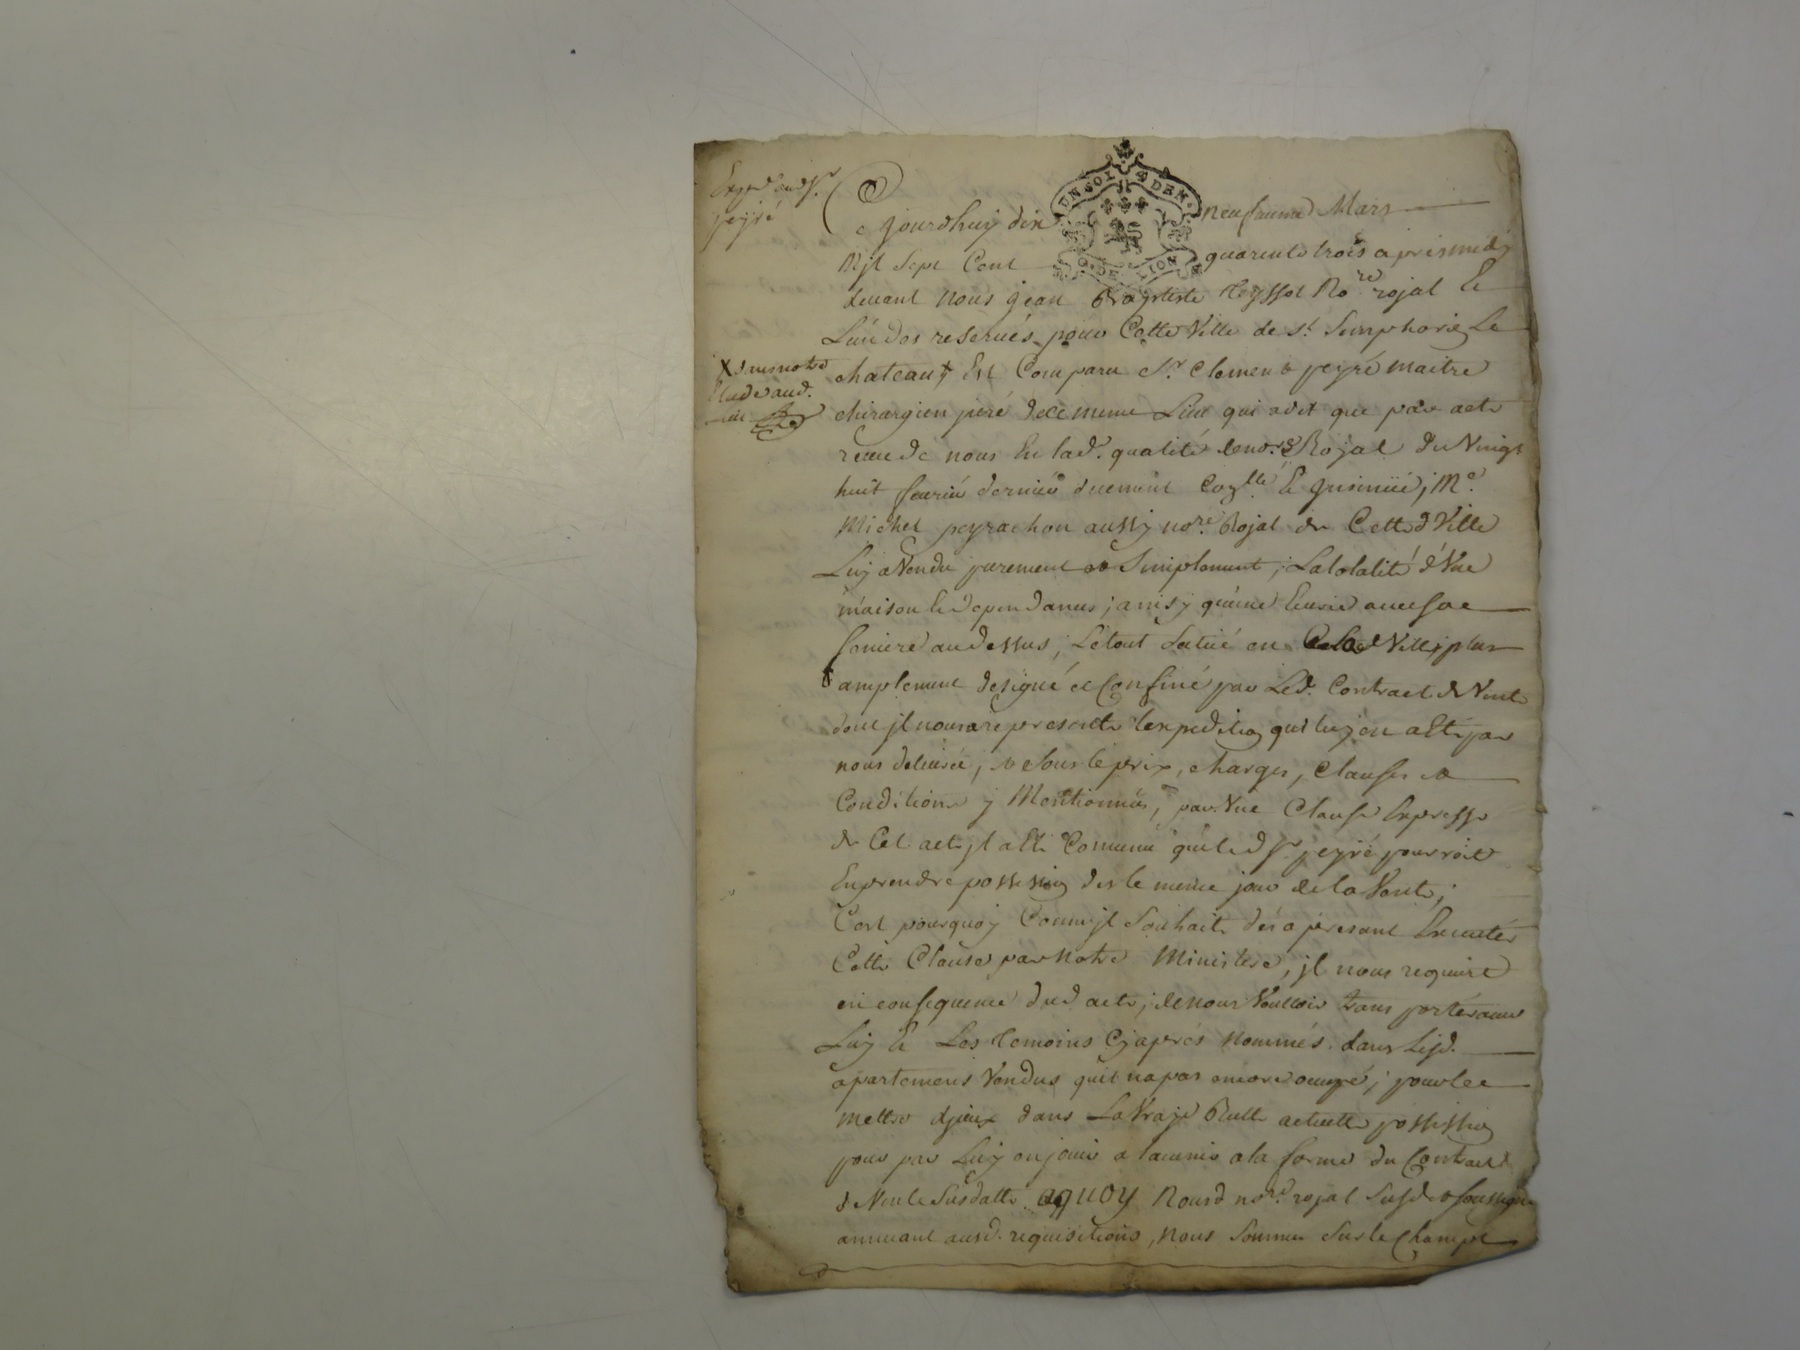 Exp.d aud Sr.
peyré
Cejourdhuy dix neufieme Mars
UN SOL 4 DEN.
G. DE LION
Mjl Sept Cent quarente trois apres midy
devant nous jean Baptiste Teyssot No.re rojal Et
Lun des reservés pour Cette Ville de st. Simphorie Le
chateau x Est Comparu Sr. Clement peyré maitre
X dans notre
Etude aud.
lieu
chirurgien juré de ce meme Lieu qui a dit que par acte
receu de nous En lad. qualité de no.re Rojal du Vingt
huit fevrier dernier duement Con.llé Et Insinué, Me.
Michel peyrachon aussy no.re Rojal de Cette d Ville
Luy a Vendu purement et Simplement, La totalité d'Une
maison Et dependances, ainsy qu'une Ecurie avec sa
feniere au dessus, Le tout Situé en Cette d Ville, plus
amplement designé et Confiné par Led. Contract de Vente
dont jl nous a representé l'expeditio qui luy en a Eté par
nous delivrée, et Sous le prix, charges, clauses et
Conditions y Mentionnés, par Une Clause Expresse
de Cet acte jl a Eté Convenu que led Sr peyré pourroit
En prendre possessio des le meme jour de la Vente,
C'est pourquoy Comme jl Souhaite des a present Executer
Cette Clause par notre Ministere, jl nous requiert
en consequence dud acte, de nous Vouloir transporter avec
Luy Et Les temoins Cy aprés nommés dans Lesd.
apartemens Vendus qu'il na pas encore occupé, pour le
mettre d'jceux dans La Vraye Reelle actuelle possessio
pour par Luy en jouir a lavenir a la forme du Contract
de Vente Susdatté aquoy Nousd no.re rojal Susd. et soussigne
annuant ausd. requisitions, nous Sommes Sur le Champt